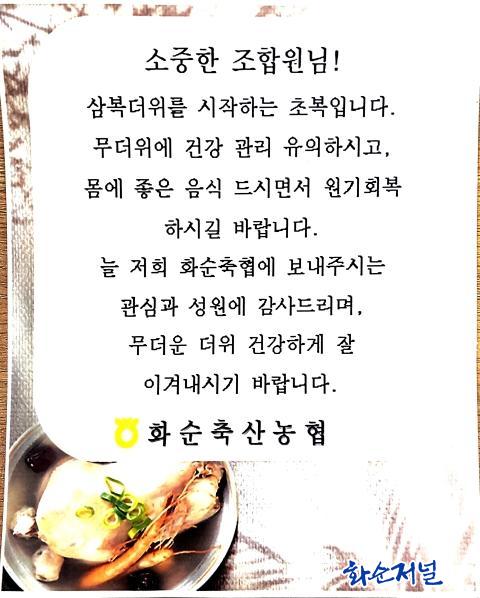 소중한 조합원님!
삼복더위를 시작하는 초복입니다.
무더위에 건강 관리 유의하시고,
몸에 좋은 음식 드시면서 원기회복
하시길 바랍니다.
늘 저희 화순축협에 보내주시는
관심과 성원에 감사드리며,
무더운 더위 건강하게 잘
이겨내시기 바랍니다.
화순축산농협
화순저널